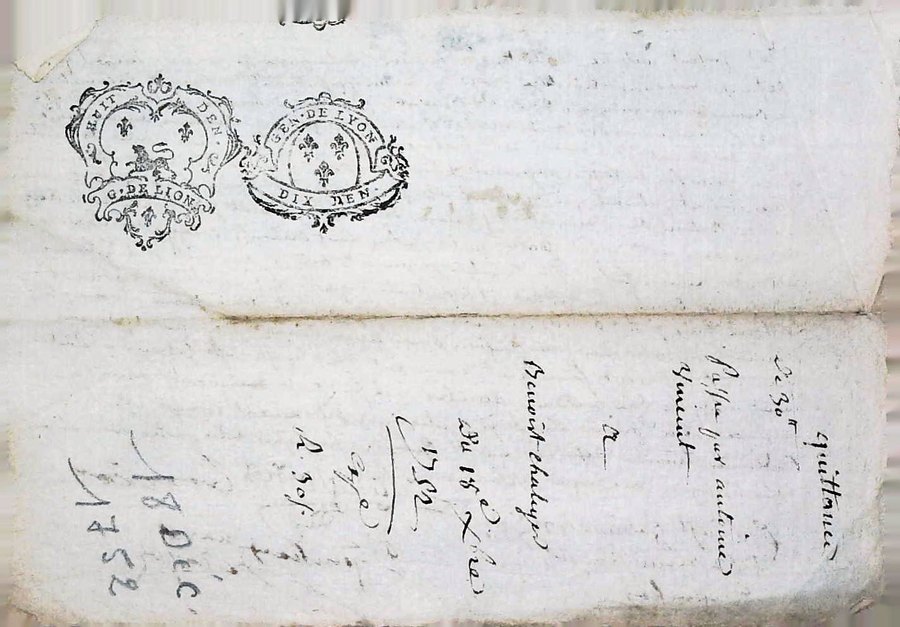 HUIT DEN.
G. DE LION
GEN. DE LYON
DIX DEN.
quittance
de 30tt
Passée par antoine
a
Benoist chaluyer
Du 18e Xbre
1752
18 DÉC.
1752